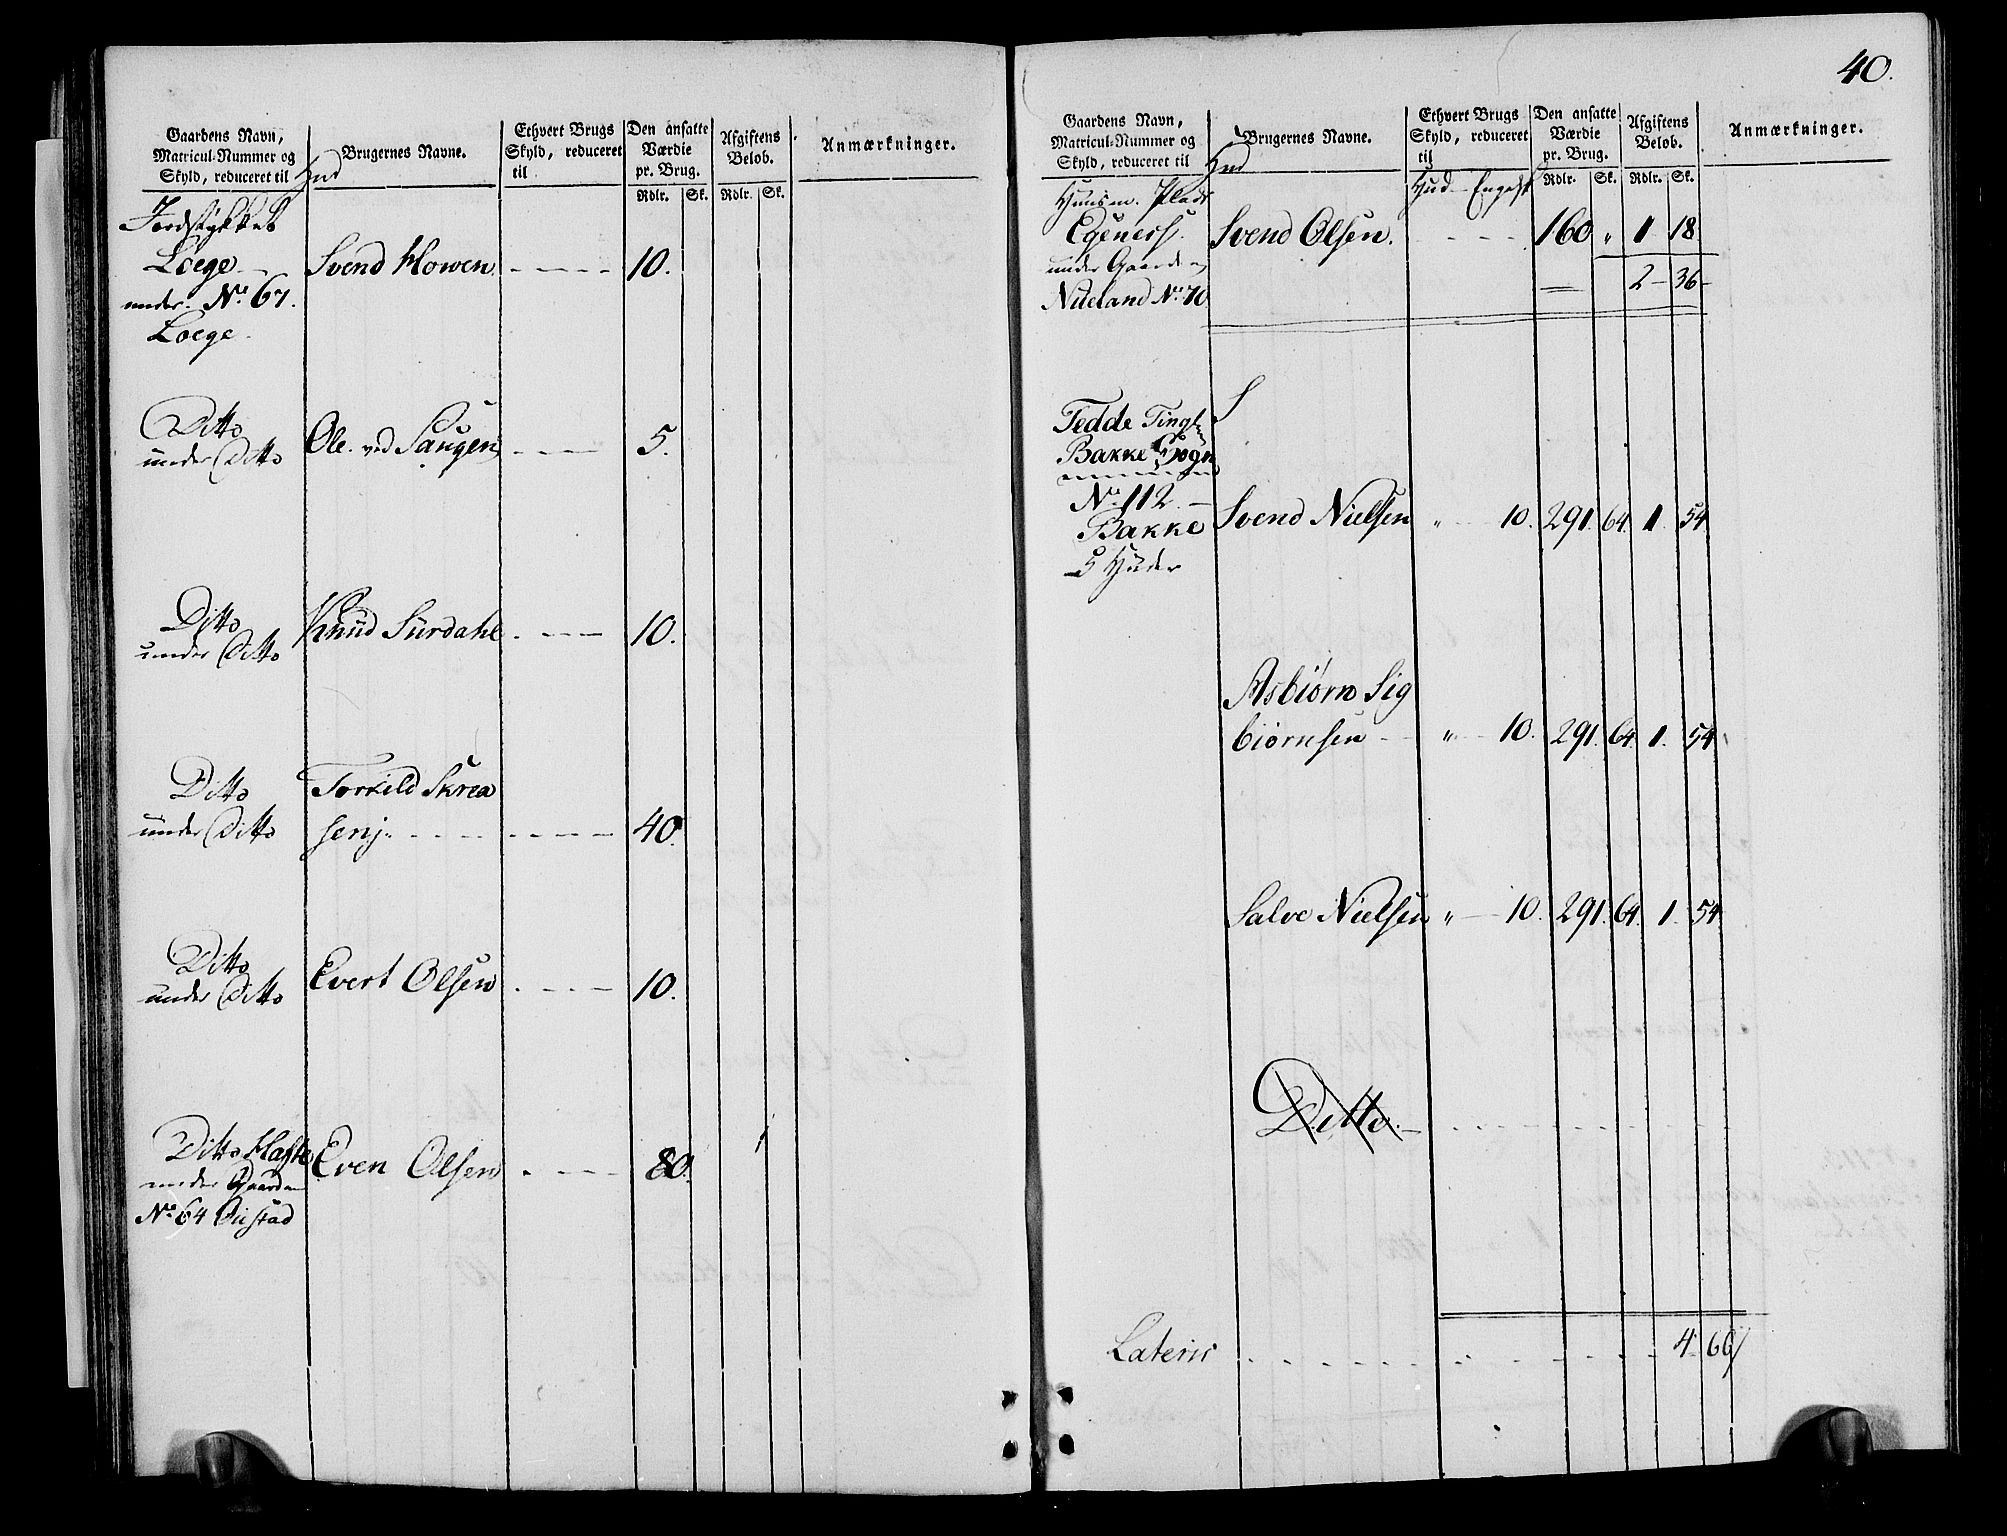 Gaardens Navn,
Matricul-Nummer og
Skyld, reduceret til Hud
Brugernes Navne.
Ethvert Brugs
Skyld, reduceret
til
Den ansatte
Værdie
pr. Brug.
Rdlr. Sk.
Afgiftens
Beløb.
Rdlr. Sk.
Anmærkninger.
Jordstykket
Løege
under No 67.
Løege.
Svend Howen 10.
Ditto
under Ditto
Ole ved Saugen 5.
Ditto
under Ditto
Knud Surdahl 10.
Ditto
under Ditto
Torkild Skrea
senj. 40.
Ditto
under Ditto
Evert Olsen 10.
Ditto
under Gaarden
No 64
Even Olsen 80.
40.
Gaardens Navn,
Matricul-Nummer og
Skyld, reduceret til Hud
Brugernes Navne.
Ethvert Brugs
Skyld, reduceret
til
Hud
Den ansatte
Værdie
pr. Brug.
Rdlr. Sk.
Afgiftens
Beløb.
Rdlr. Sk.
Anmærkninger.
Huusm. Plads
under Gaarden
Nueland No 70
Svend Olsen. 160 " 1 18
2 - 36 -
Fedde Tingl
Bakke Sogn
No 112.
Bakke
5 Huder
Svend Nielsen " 10. 291. 64. 1. 54
Asbiørn Sig
biørnsen " 10. 291. 64. 1. 54
Salve Nielsen " 10. 291. 64. 1. 54
Ditto.
Lateris 4 66